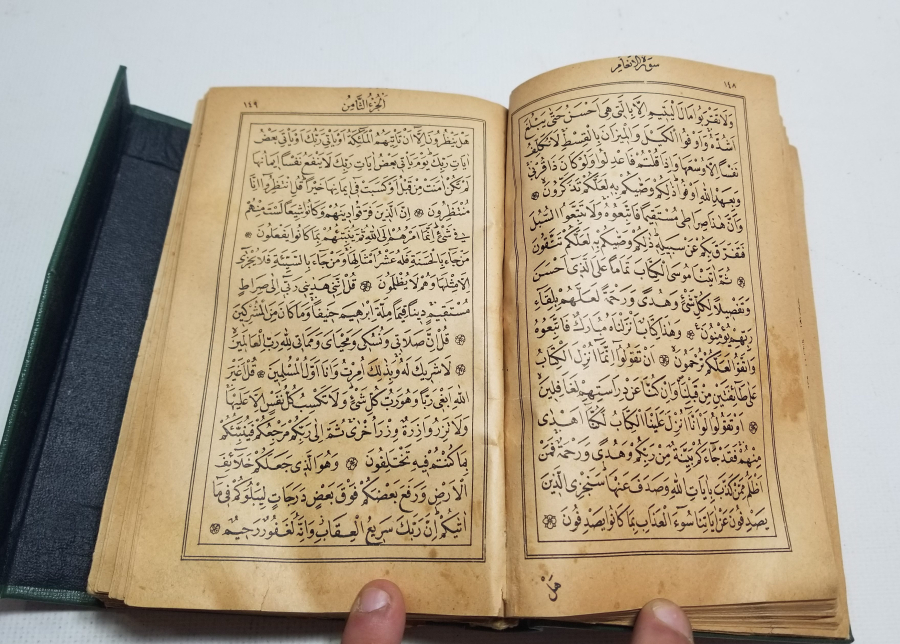 ١٤٨
سورة الانعام
وَلَا تَقْرَبُوا مَالَ الْيَتِيمِ اِلَّا بِالَّتِي هِيَ اَحْسَنُ حَتّٰى يَبْلُغَ
اَشُدَّهُ وَاَوْفُوا الْكَيْلَ وَالْمِيزَانَ بِالْقِسْطِ لَا نُكَلِّفُ
نَفْسًا اِلَّا وُسْعَهَا وَاِذَا قُلْتُمْ فَاعْدِلُوا وَلَوْ كَانَ ذَا قُرْبٰى
وَبِعَهْدِ اللّٰهِ اَوْفُوا ذٰلِكُمْ وَصّٰيكُمْ بِهِ لَعَلَّكُمْ تَذَكَّرُونَ
وَاَنَّ هٰذَا صِرَاطِي مُسْتَقِيمًا فَاتَّبِعُوهُ وَلَا تَتَّبِعُوا السُّبُلَ
فَتَفَرَّقَ بِكُمْ عَنْ سَبِيلِهِ ذٰلِكُمْ وَصّٰيكُمْ بِهِ لَعَلَّكُمْ تَتَّقُونَ
ثُمَّ اٰتَيْنَا مُوسَى الْكِتَابَ تَمَامًا عَلَى الَّذِي اَحْسَنَ
وَتَفْصِيلًا لِكُلِّ شَيْءٍ وَهُدًى وَرَحْمَةً لَعَلَّهُمْ بِلِقَاءِ
رَبِّهِمْ يُؤْمِنُونَ وَهٰذَا كِتَابٌ اَنْزَلْنَاهُ مُبَارَكٌ فَاتَّبِعُوهُ
وَاتَّقُوا لَعَلَّكُمْ تُرْحَمُونَ اَنْ تَقُولُوا اِنَّمَا اُنْزِلَ الْكِتَابُ
عَلٰى طَائِفَتَيْنِ مِنْ قَبْلِنَا وَاِنْ كُنَّا عَنْ دِرَاسَتِهِمْ لَغَافِلِينَ
اَوْ تَقُولُوا لَوْ اَنَّا اُنْزِلَ عَلَيْنَا الْكِتَابُ لَكُنَّا اَهْدٰى
مِنْهُمْ فَقَدْ جَاءَكُمْ بَيِّنَةٌ مِنْ رَبِّكُمْ وَهُدًى وَرَحْمَةٌ فَمَنْ
اَظْلَمُ مِمَّنْ كَذَّبَ بِاٰيَاتِ اللّٰهِ وَصَدَفَ عَنْهَا سَنَجْزِي الَّذِينَ
يَصْدِفُونَ عَنْ اٰيَاتِنَا سُوءَ الْعَذَابِ بِمَا كَانُوا يَصْدِفُونَ
هَلْ
الجزء الثامن
١٤٩
هَلْ يَنْظُرُونَ اِلَّا اَنْ تَأْتِيَهُمُ الْمَلٰئِكَةُ اَوْ يَأْتِيَ رَبُّكَ اَوْ يَأْتِيَ بَعْضُ
اٰيَاتِ رَبِّكَ يَوْمَ يَأْتِي بَعْضُ اٰيَاتِ رَبِّكَ لَا يَنْفَعُ نَفْسًا اِيمَانُهَا
لَمْ تَكُنْ اٰمَنَتْ مِنْ قَبْلُ اَوْ كَسَبَتْ فِي اِيمَانِهَا خَيْرًا قُلِ انْتَظِرُوا اِنَّا
مُنْتَظِرُونَ اِنَّ الَّذِينَ فَرَّقُوا دِينَهُمْ وَكَانُوا شِيَعًا لَسْتَ مِنْهُمْ
فِي شَيْءٍ اِنَّمَا اَمْرُهُمْ اِلَى اللّٰهِ ثُمَّ يُنَبِّئُهُمْ بِمَا كَانُوا يَفْعَلُونَ
مَنْ جَاءَ بِالْحَسَنَةِ فَلَهُ عَشْرُ اَمْثَالِهَا وَمَنْ جَاءَ بِالسَّيِّئَةِ فَلَا يُجْزٰى
اِلَّا مِثْلَهَا وَهُمْ لَا يُظْلَمُونَ قُلْ اِنَّنِي هَدٰينِي رَبِّي اِلٰى صِرَاطٍ
مُسْتَقِيمٍ دِينًا قِيَمًا مِلَّةَ اِبْرٰهِيمَ حَنِيفًا وَمَا كَانَ مِنَ الْمُشْرِكِينَ
قُلْ اِنَّ صَلَاتِي وَنُسُكِي وَمَحْيَايَ وَمَمَاتِي لِلّٰهِ رَبِّ الْعَالَمِينَ
لَا شَرِيكَ لَهُ وَبِذٰلِكَ اُمِرْتُ وَاَنَا اَوَّلُ الْمُسْلِمِينَ قُلْ اَغَيْرَ
اللّٰهِ اَبْغِي رَبًّا وَهُوَ رَبُّ كُلِّ شَيْءٍ وَلَا تَكْسِبُ كُلُّ نَفْسٍ اِلَّا عَلَيْهَا
وَلَا تَزِرُ وَازِرَةٌ وِزْرَ اُخْرٰى ثُمَّ اِلٰى رَبِّكُمْ مَرْجِعُكُمْ فَيُنَبِّئُكُمْ
بِمَا كُنْتُمْ فِيهِ تَخْتَلِفُونَ وَهُوَ الَّذِي جَعَلَكُمْ خَلَائِفَ
الْاَرْضِ وَرَفَعَ بَعْضَكُمْ فَوْقَ بَعْضٍ دَرَجَاتٍ لِيَبْلُوَكُمْ فِي مَا
اٰتٰيكُمْ اِنَّ رَبَّكَ سَرِيعُ الْعِقَابِ وَاِنَّهُ لَغَفُورٌ رَحِيمٌ